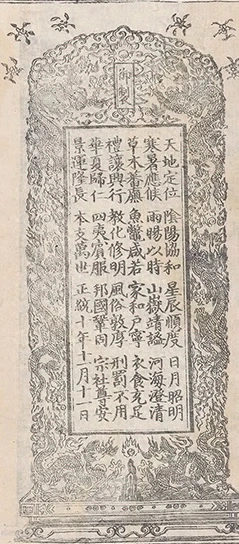 御製
天地定位 陰陽協和 星辰順度 日月昭明
寒暑應候 雨暘以時 山嶽靖謐 河海澄清
草木蕃廡 魚鱉咸若 家和戶寧 衣食充足
禮讓興行 教化修明 風俗敦厚 刑罰不用
華夏歸仁 四夷賓服 邦國鞏固 宗社尊安
景運隆長 本支萬世 正統十年十一月十一日